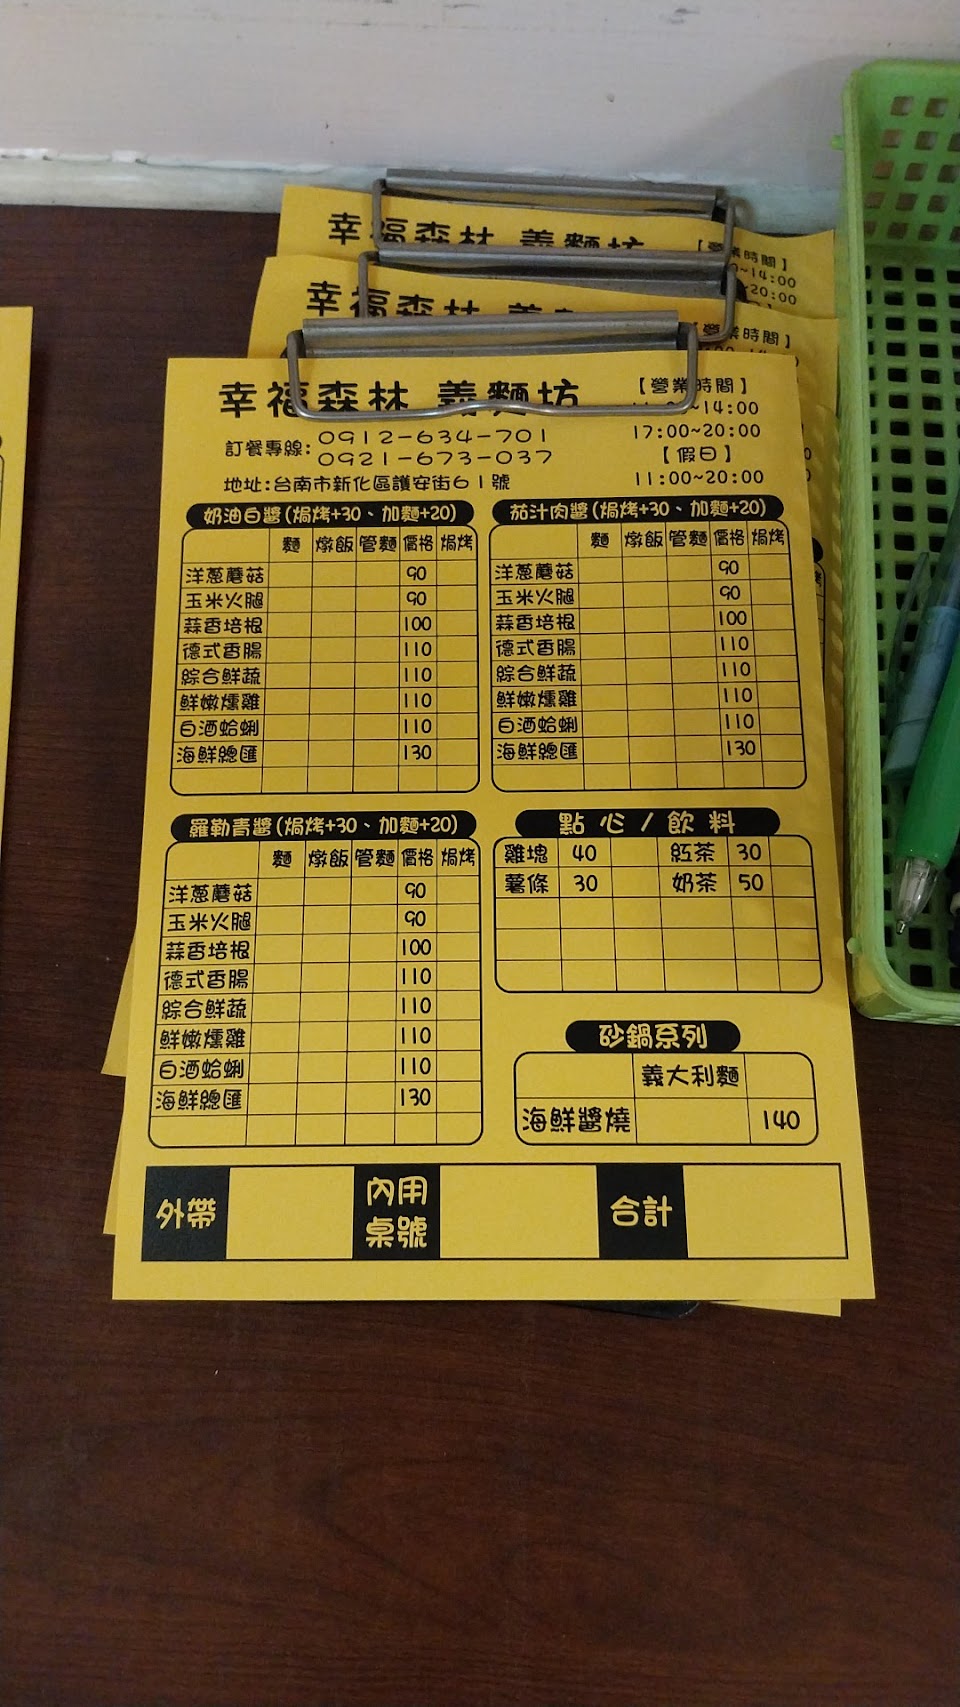 幸福森林 義麵坊
【營業時間】
~14:00
17:00~20:00
【假日】
11:00~20:00
訂餐專線:0912-634-701
0921-673-037
地址:台南市新化區護安街61號
奶油白醬(焗烤+30、加麵+20)
麵 燉飯 管麵 價格 焗烤
洋蔥蘑菇 90
玉米火腿 90
蒜香培根 100
德式香腸 110
綜合鮮蔬 110
鮮嫩燻雞 110
白酒蛤蜊 110
海鮮總匯 130
茄汁肉醬(焗烤+30、加麵+20)
麵 燉飯 管麵 價格 焗烤
洋蔥蘑菇 90
玉米火腿 90
蒜香培根 100
德式香腸 110
綜合鮮蔬 110
鮮嫩燻雞 110
白酒蛤蜊 110
海鮮總匯 130
羅勒青醬(焗烤+30、加麵+20)
麵 燉飯 管麵 價格 焗烤
洋蔥蘑菇 90
玉米火腿 90
蒜香培根 100
德式香腸 110
綜合鮮蔬 110
鮮嫩燻雞 110
白酒蛤蜊 110
海鮮總匯 130
點心/飲料
雞塊 40 紅茶 30
薯條 30 奶茶 50
砂鍋系列
義大利麵
海鮮醬燒 140
外帶 內用桌號 合計